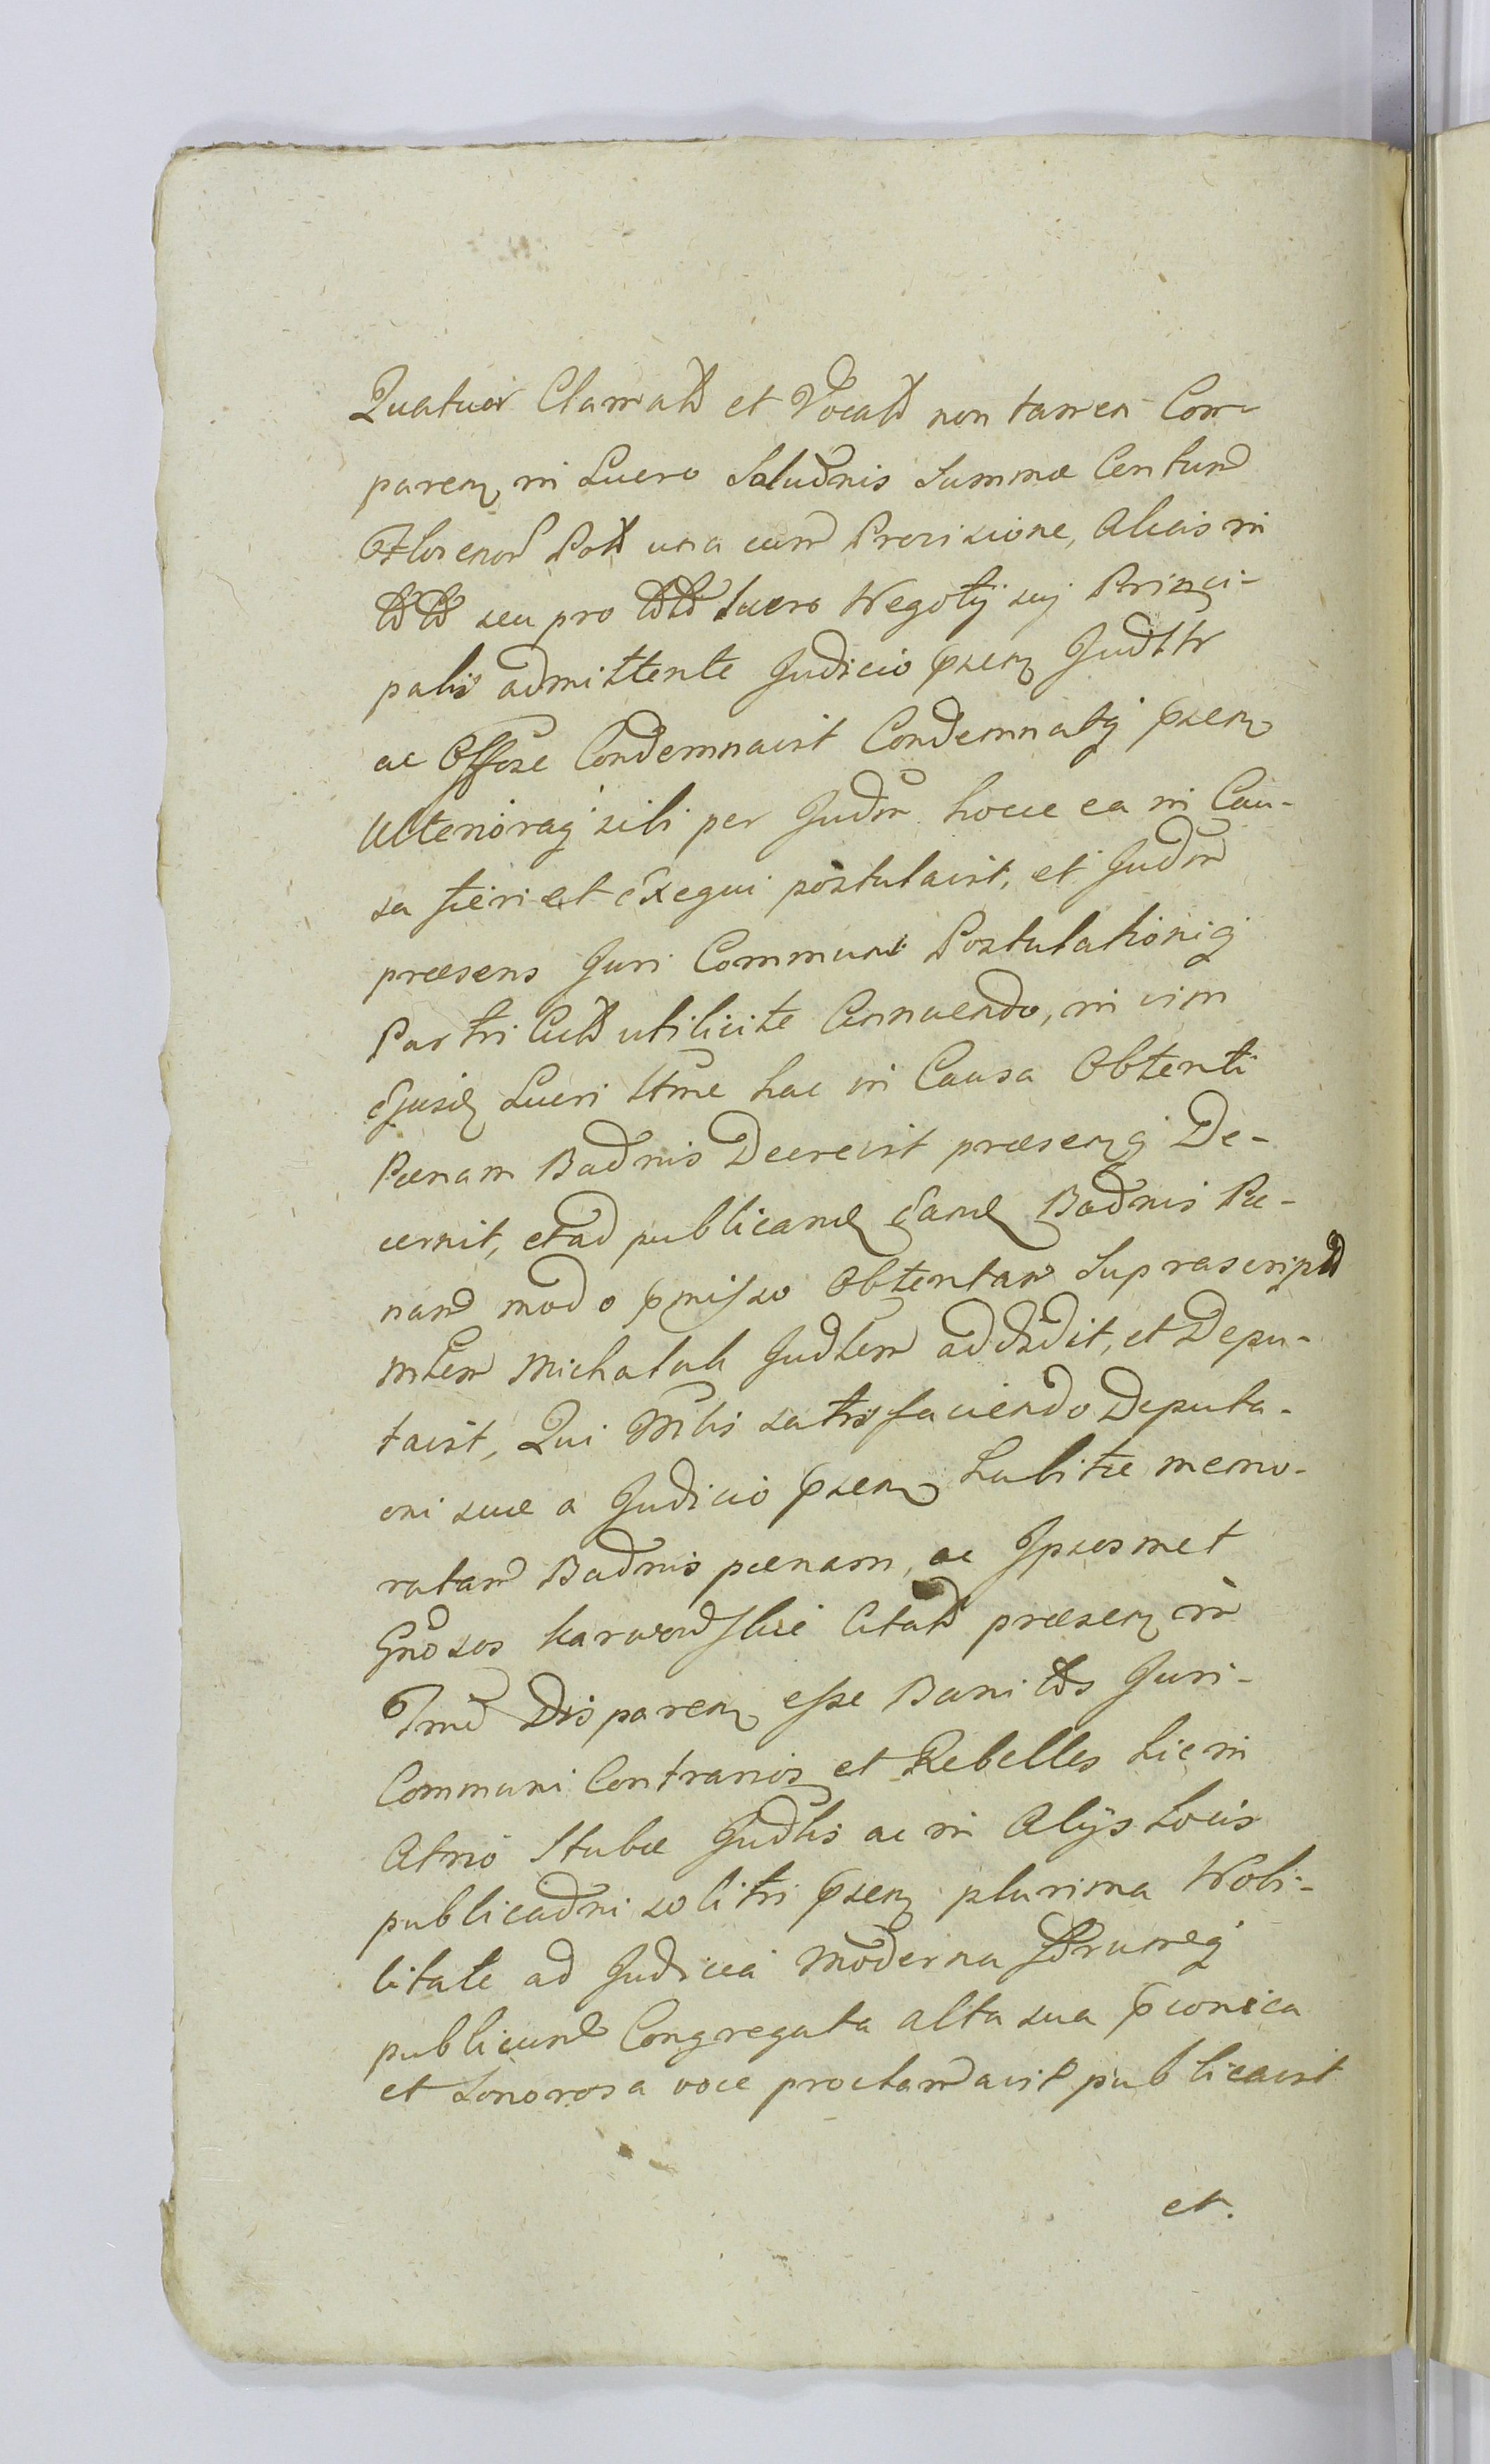 Quatuor Clamatt et Vocatt non tamen Com-
paren in Lucro Soludnis Summæ Centum
Florenor Poll una cum Provisione, Alias in
tt tt seu pro tt tt lucro Negotij sui Princi-
palis admittente Judicio psen Judltr
ac Offose Condemnavit Condemnatq psen
Ulterioraq sibi per Judm hocce ea in Cau-
sa fieri et exequi postulavit, et Judm
præsens Juri Communi Postulationiq
Partis Actt utilicite Annuendo, in vim
Ejusd Lucri ttme hac in Causa Obtenti
Pœnam Badnis Decrevit præsenq De-
cernit, et ad publicand Eand Badnis Pœ-
nam modo pmisso Obtentam Suprascriptt
mtem Michalak Judlem addidit, et Depu-
tavit, Qui Mtlis satisfaciendo Deputa-
oni suæ a Judicio psen habitæ memo-
ratam Badnis pœnam, ac Ipsosmet
Gnosos Karwowskie Citatt præsen in
Tmo Disparen esse Banittos Juri
Communi Contrarios et Rebelles hic in
Atrio Stubæ Judlis ac in Alijs Locis
publicadni solitis psen plurima Nobi-
litate ad Judicia moderna ttrumq
publicum Congregata alta sua pconica
et Sonorosa voce proclamavit publicavit
et.